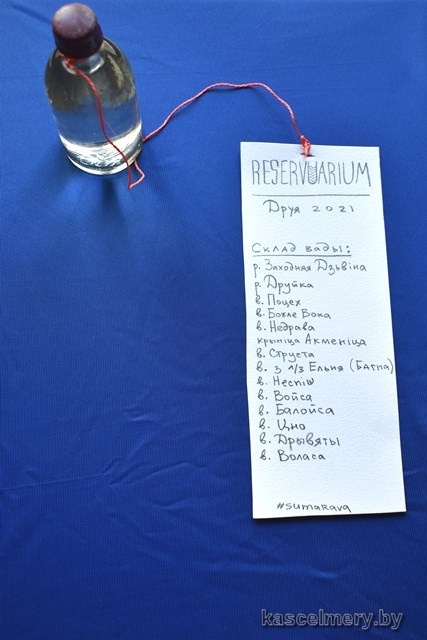 RESERVUARIUM
Друя 2021
Склад вады:
р. Заходняя Дзьвіна
р. Друйка
в. Поцех
в. Божле Вока
в. Недрава
крыніца Акменіца
в. Струста
в. з л/з Ельня (Багна)
в. Неспіш
в. Войса
в. Балойса
в. Цно
в. Дрывяты
в. Воласа
#sumarava
kascelmery.by